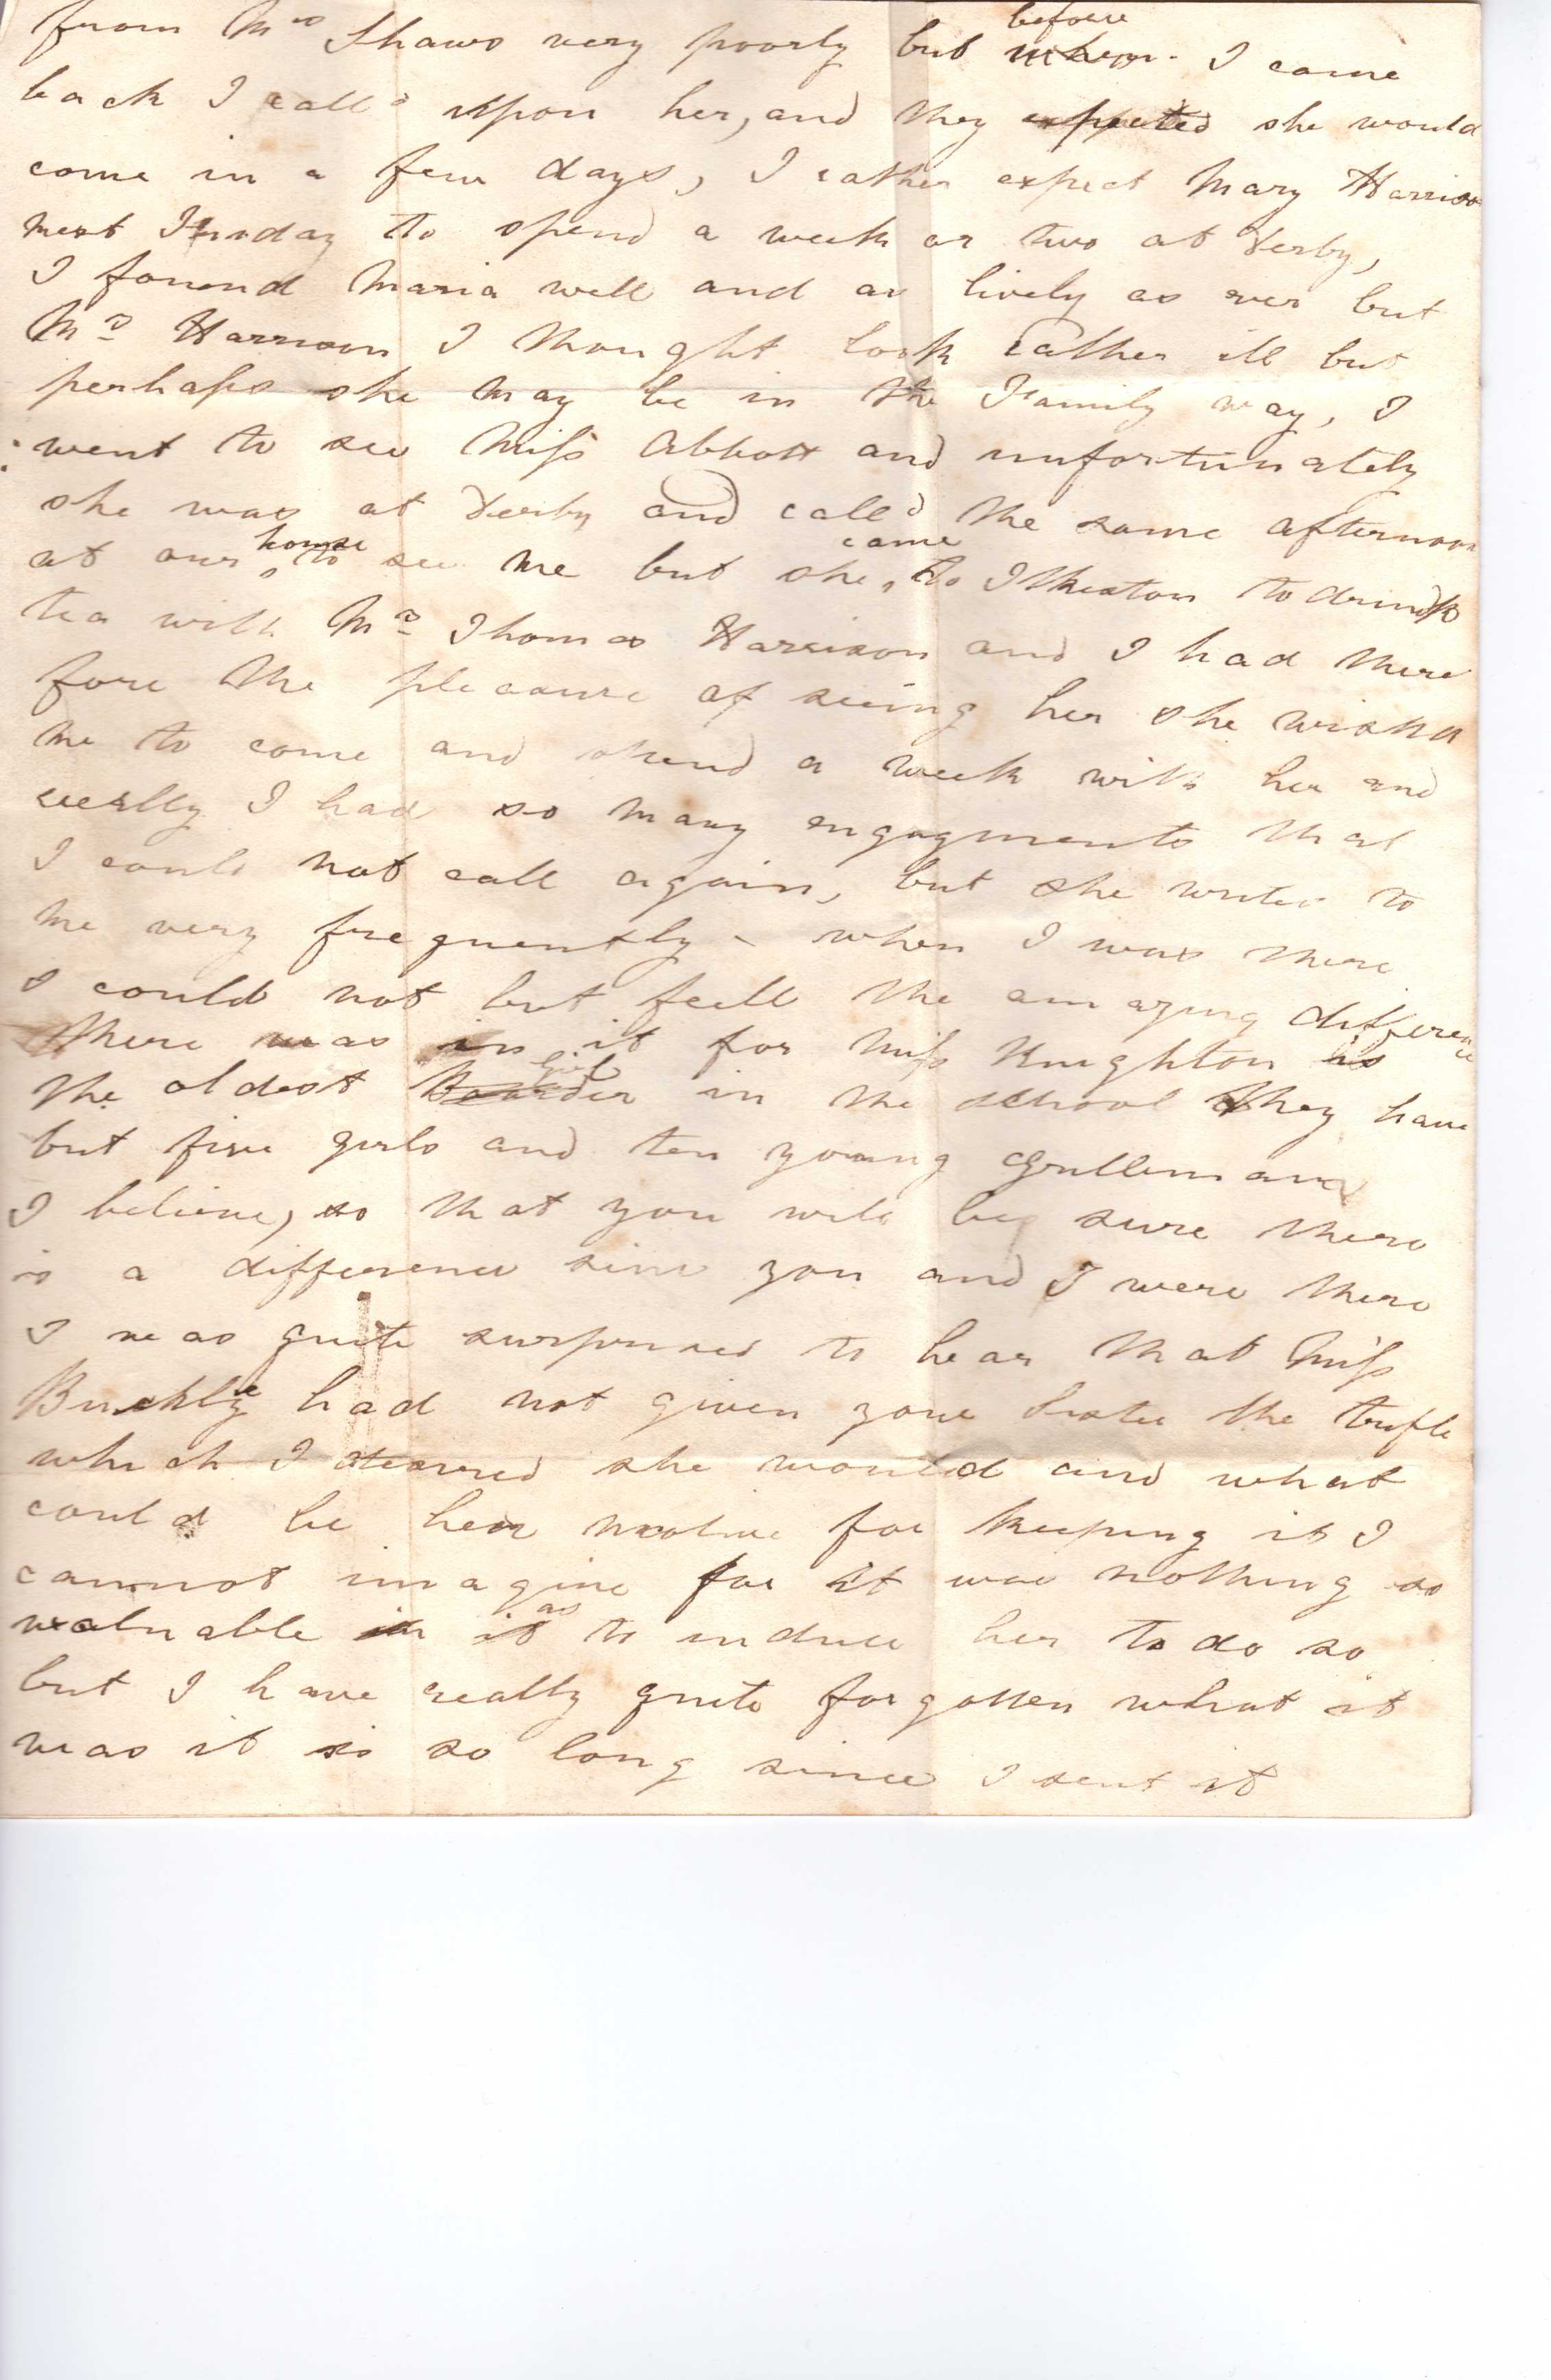 from Mrs Shaws very poorly but before when I came
back I calld upon her, and they expected she would
come in a few days, I rather expect Mary Harrison
next Tuesday to spend a week or two at Derby,
I found Maria well and as lively as ever but
Mrs Harrison I thought look rather ill but
perhaps she may be in the Family way, I
went to see Miss Abbott and unfortunately
she was at Derby and calld the same afternoon
at our house to see me but she came to Ilkeston to drink
tea with Mrs Thomas Harrison and I had there
fore the pleasure of seeing her she wishd
me to come and spend a week with her and
really I had so many engagments that
I could not call again, but she writes to
me very frequently - when I was there
I could not but feell the amazing difference
there was in it for Miss Knighton is
the oldest Boarder girl in the school they have
but five girls and ten young Gentlemand
I believe, so that you will be sure there
is a difference since you and I were there
I was quite surprised to hear that Miss
Buckly had not given your sister the trifle
which I desired she would and what
could be her motive for keeping it I
cannot imagine for it was nothing so
valuable in it as to induce her to do so
but I have really quite forgotten what it
was it is so long since I sent it